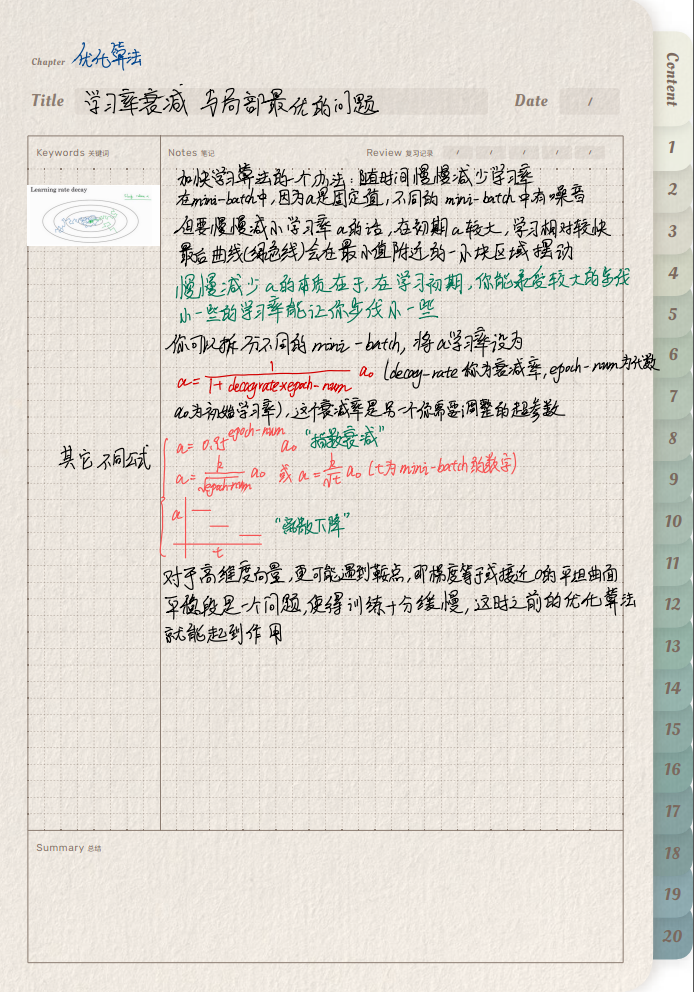 Chapter 优化算法
Title 学习率衰减 与局部最优的问题 Date /
Keywords 关键词 Notes 笔记 Review 复习记录 / / / / /
Learning rate decay
加快学习算法的一个办法：随时间慢慢减少学习率
在mini-batch中，因为a是固定值，不同的 mini-batch 中有噪音
但要慢慢减小学习率 a的话，在初期 a较大，学习相对较快
最后曲线(绿色线)会在最小值附近的一小块区域摆动
慢慢减少 a的本质在于，在学习初期，你能承受较大的步伐
小一些的学习率能让你步伐小一些
你可以拆分不同的 mini-batch，将 a学习率设为
a = 1 / (1 + decayrate×epoch-num) a₀ (decay-rate 称为衰减率，epoch-num为代数
a₀为初始学习率)，这个衰减率是另一个你需要调整的超参数
其它不同公式
a = 0.95^epoch-num a₀ “指数衰减”
a = k/√epoch-num a₀ 或 a = k/√t a₀ (t为mini-batch的数字)
a
“离散下降”
t
对于高维度向量，更可能遇到鞍点，即梯度等于或接近0的平坦曲面
平稳段是一个问题，使得训练十分缓慢，这时之前的优化算法
就能起到作用
Summary 总结
Content
1
2
3
4
5
6
7
8
9
10
11
12
13
14
15
16
17
18
19
20